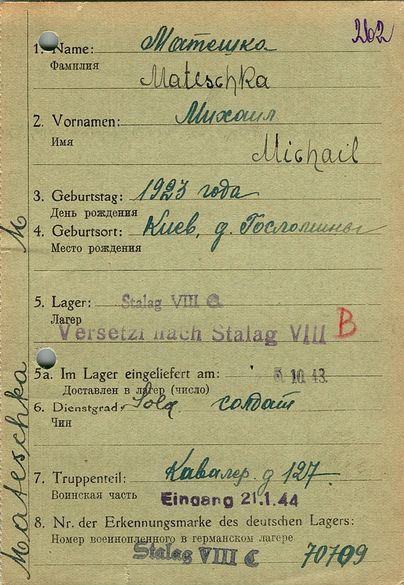 262
1. Name: Матешка
Фамилия
Mateschka
2. Vornamen: Михаил
Имя
Michail
3. Geburtstag: 1923 года
День рождения
4. Geburtsort: Киев, д. Гостомины
Место рождения
5. Lager: Stalag VIII C
Лагер
Versetzt nach Stalag VIII B
5a. Im Lager eingeliefert am: 5. 10. 43.
Доставлен в лагер (число)
6. Dienstgrad: Sold солдат
Чин
7. Truppenteil: Кавалер. д 127.
Воинская часть
Eingang 21.1.44
8. Nr. der Erkennungsmarke des deutschen Lagers:
Номер военнопленного в германском лагере
Stalag VIII C 70709
Mateschka M